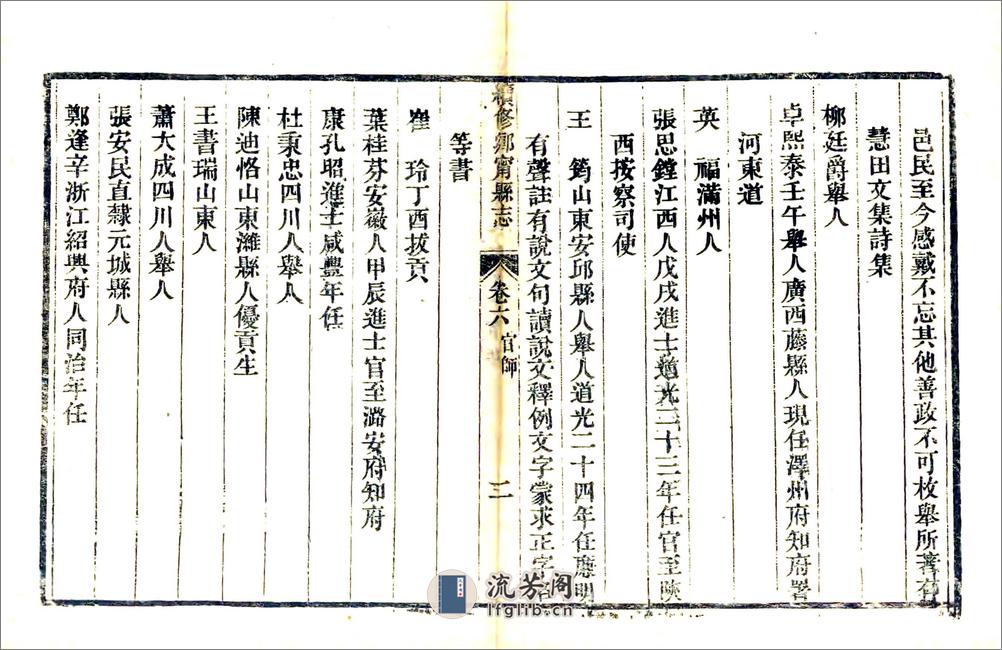 邑民至今感戴不忘其他善政不可枚舉所著有
慧田文集詩集
柳廷爵舉人
卓熙泰壬午舉人廣西藤縣人現任澤州府知府署
河東道
英　福滿州人
張思鏜江西人戊戌進士道光二十三年任官至陝
西按察司使
王　筠山東安邱縣人舉人道光二十四年任廉明
有聲註有說文句讀說文釋例文字蒙求正字
等書
續修鄉甯縣志
卷六
官師
三
崔　玲丁酉拔貢
葉桂芬安徽人甲辰進士官至潞安府知府
康孔昭進士咸豐年任
杜秉忠四川人舉人
陳迪恪山東濰縣人優貢生
王書瑞山東人
蕭大成四川人舉人
張安民直隸元城縣人
鄭逢辛浙江紹興府人同治年任
流芳阁
lfglib.cn